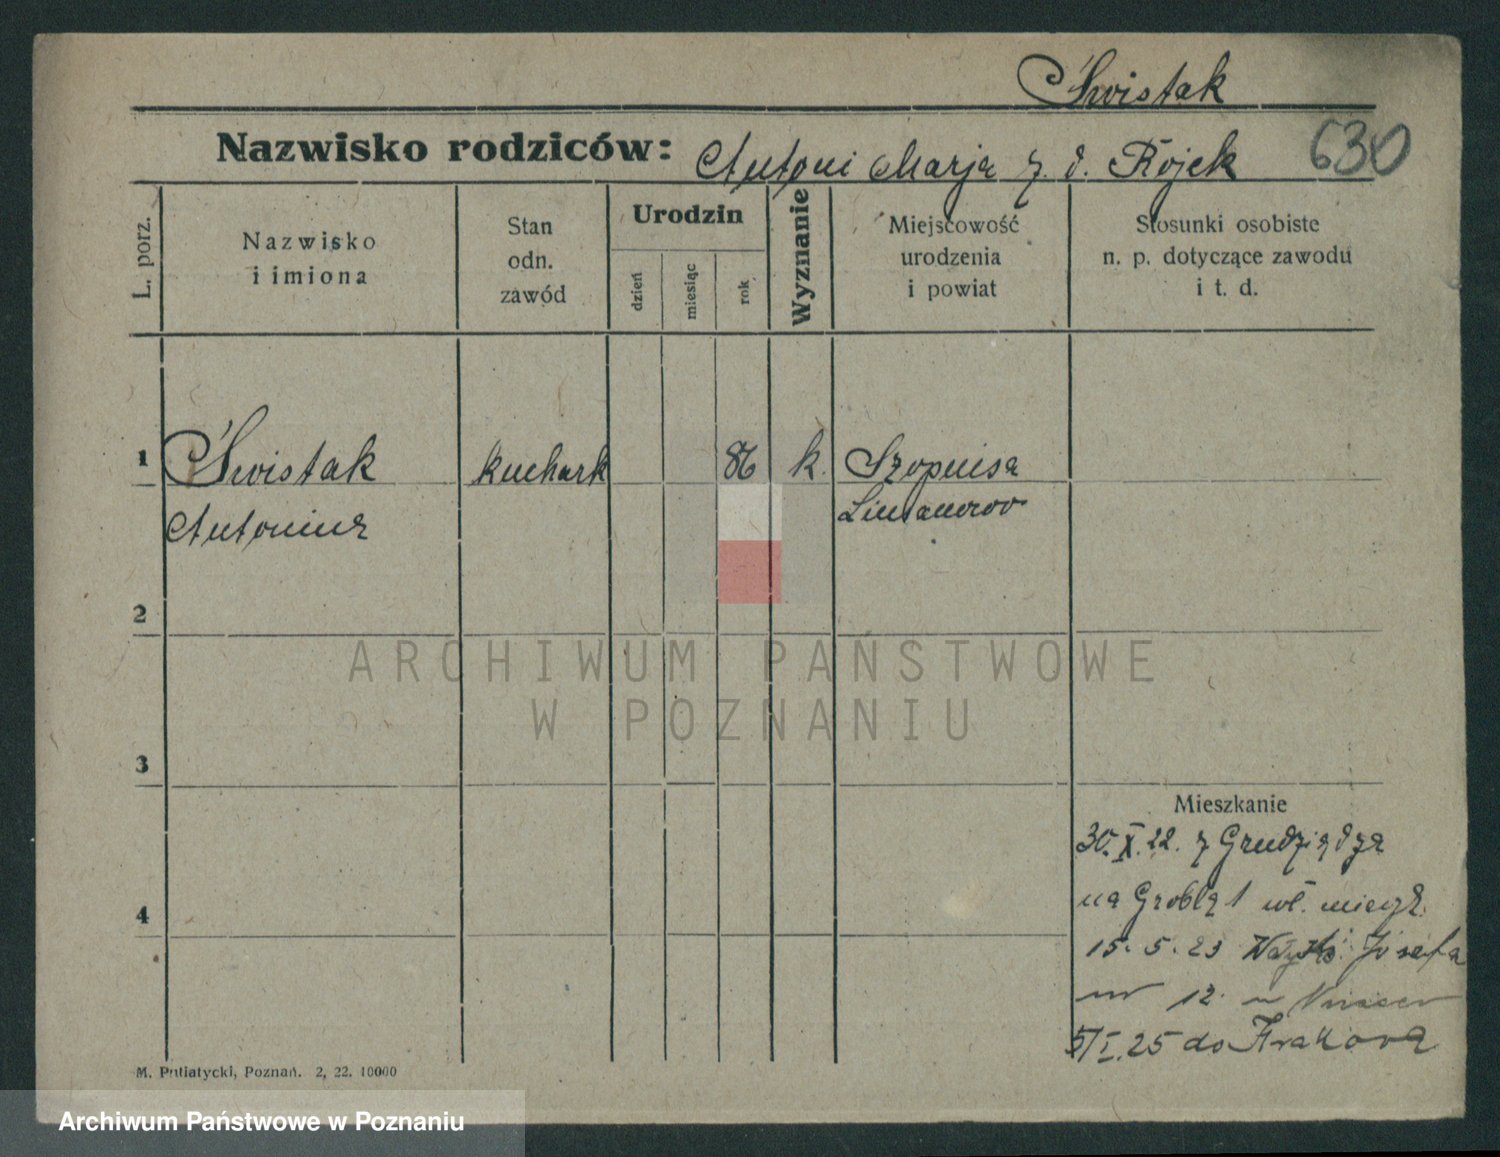 Świstak
Nazwisko rodziców: Antoni Marja z. d. Rojek
630
L. porz.
Nazwisko
i imiona
Stan
odn.
zawód
Urodzin
dzień
miesiąc
rok
Wyznanie
Miejscowość
urodzenia
i powiat
Stosunki osobiste
n. p. dotyczące zawodu
i t. d.
1 Świstak kuchark 86 k.
Antonina Limanowo
2
3
4
Mieszkanie
30.X.22. z Grudziądza
na Groblą 1 wł. mieszk.
15. 5. 23 Józefa
nr 12.
5/I.25 do Krakowa
M. Putiatycki, Poznań. 2, 22. 10000
ARCHIWUM PAŃSTWOWE
W POZNANIU
Archiwum Państwowe w Poznaniu